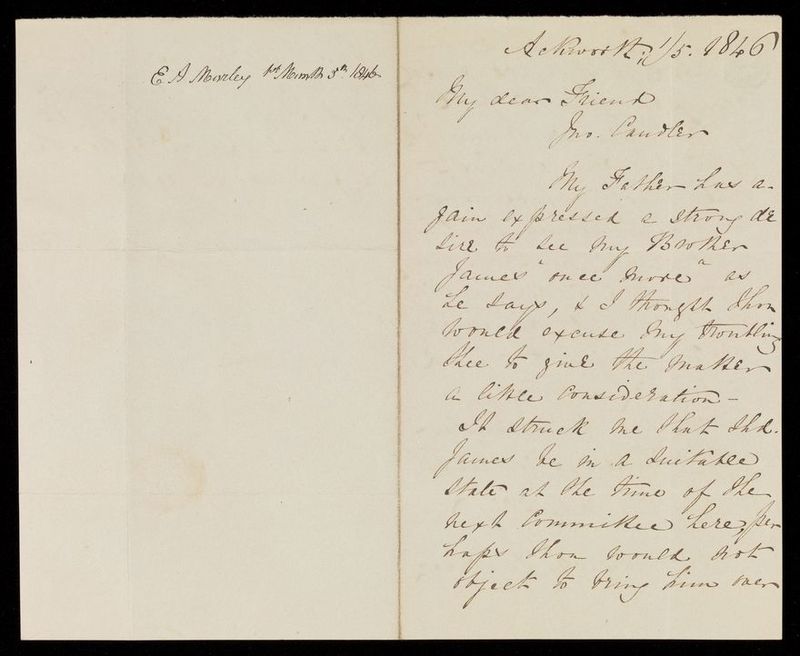 E A Morley 1st Month 5th 1846
Ackworth, 1/5. 1846
My dear Friend
Jno. Candler
My Father has a-
gain expressed a strong de
sire to see my Brother
James "once more" as
he says, & I thought thou
would excuse my troubling
thee to give the matter
a little consideration -
It struck me that shd.
James be in a suitable
state at the time of the
next Committee here, per
haps thou would not
object to bring him over